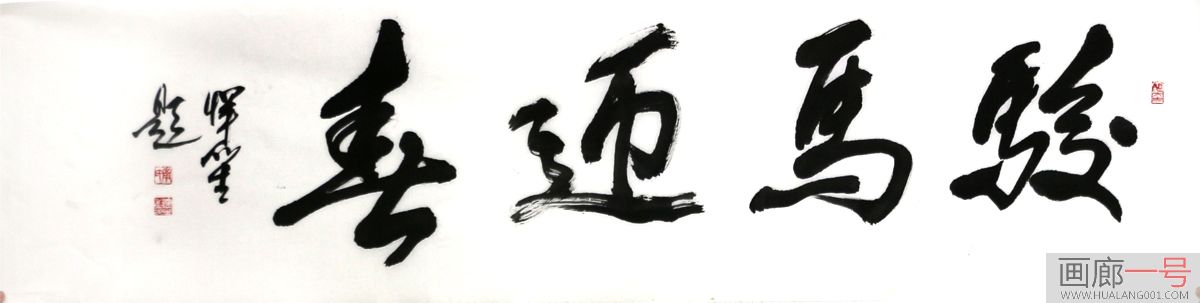 駿馬迎春
題
画廊一号
WWW.HUALANG001.COM